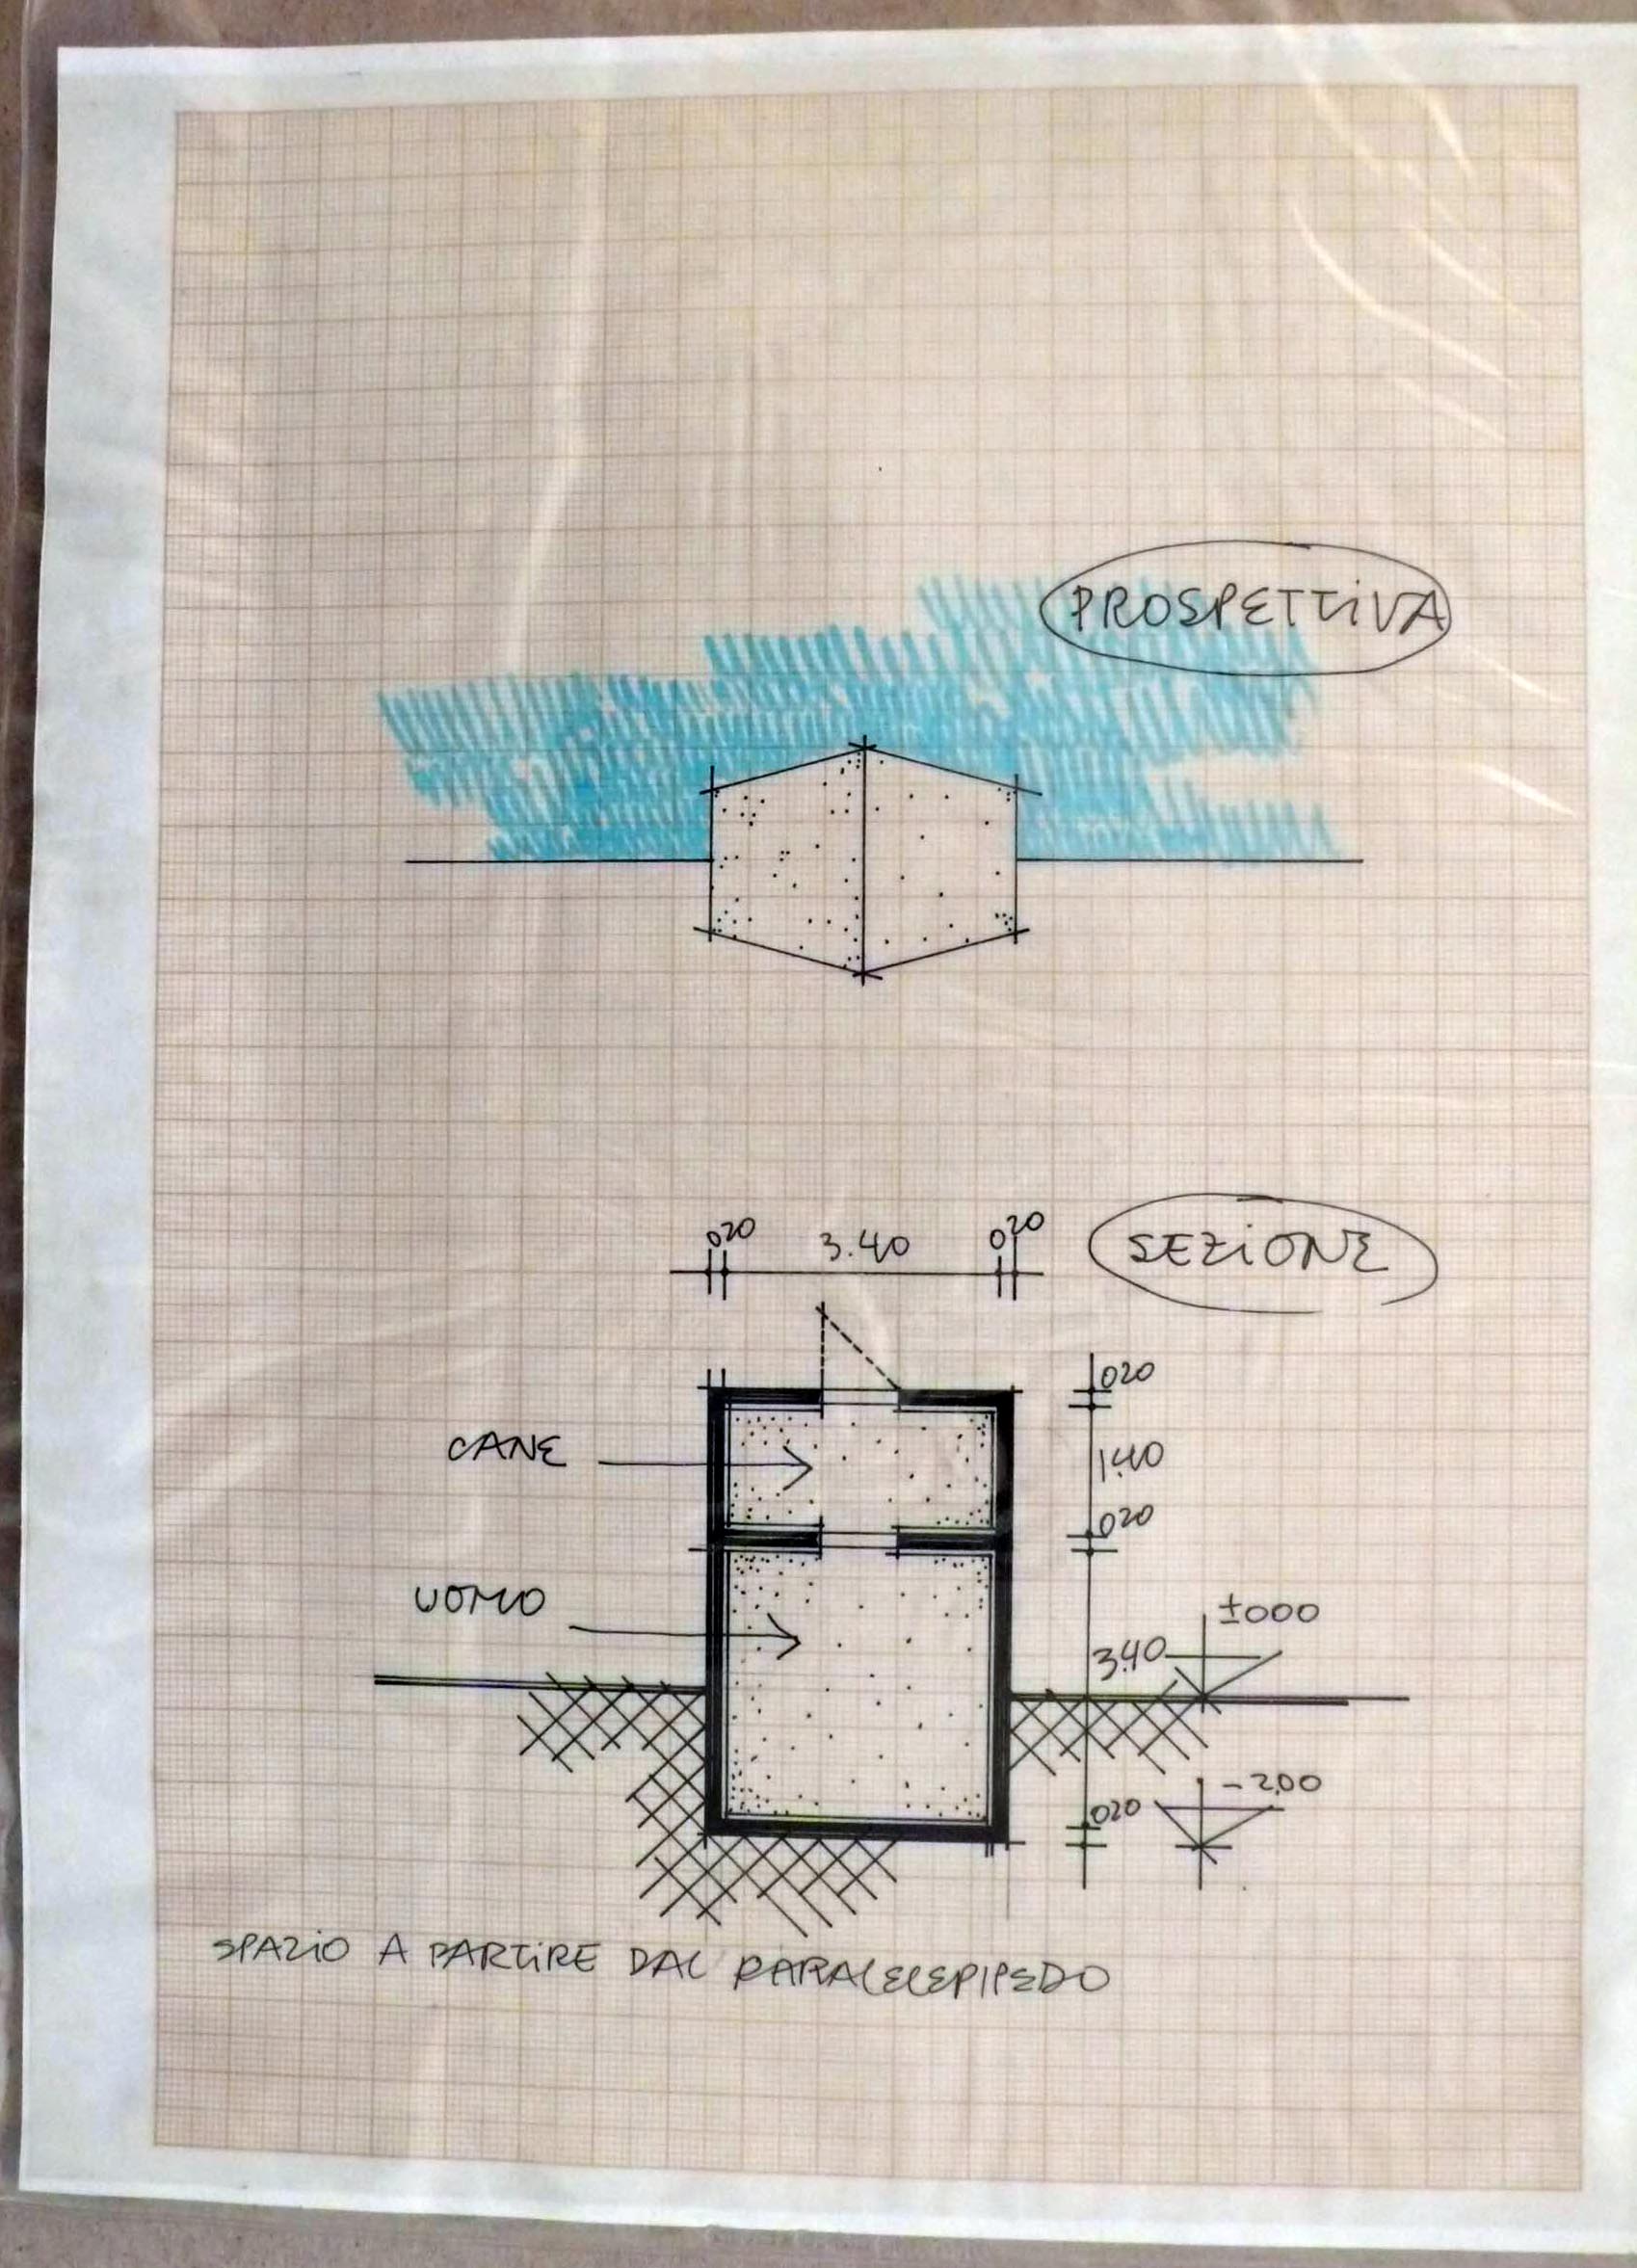 PROSPETTIVA
020 3.40 020
SEZIONE
020
CANE
1.40
020
UOMO
±000
3.40
-2.00
020
SPAZIO A PARTIRE DAL PARALELEPIPEDO